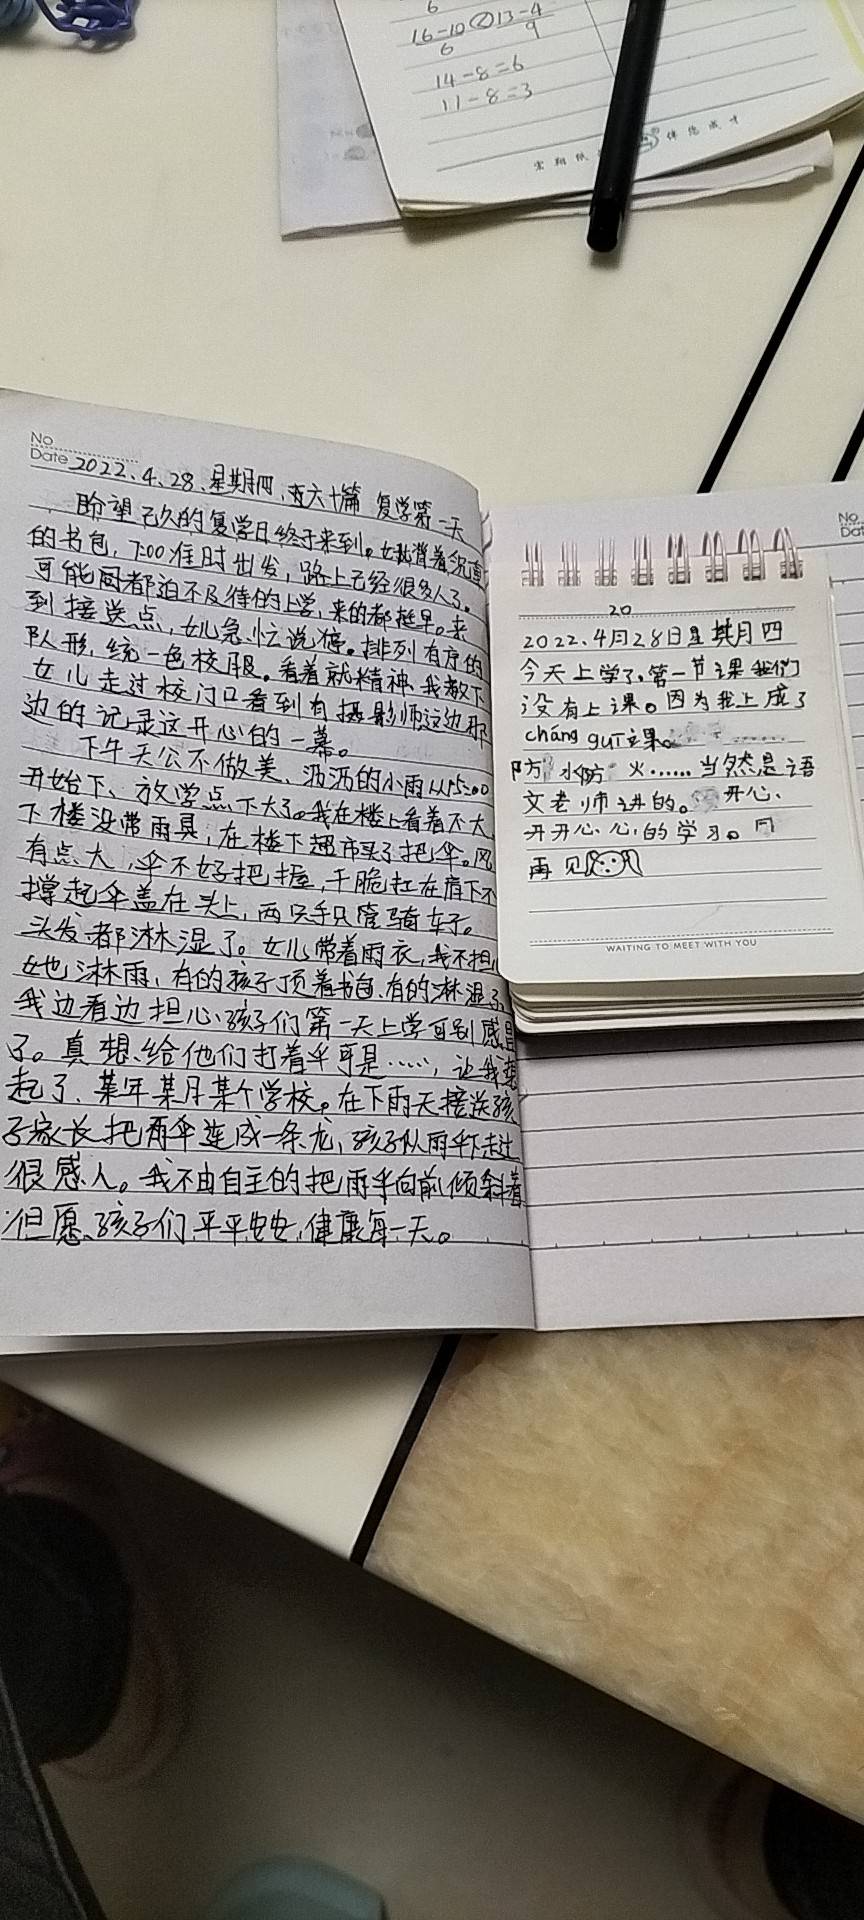 6
16-10 ② 13-4
6 9
14-8=6
11-8=3
No
Date 2022、4、28、星期四、六十篇 复学第一天
盼望已久的复学日终于来到。女儿背着沉重
的书包，7:00准时出发，路上已经很多人了。
可能 都迫不及待的上学，来的都挺早。来
到接送点，女儿急忙说 。排列有序的
队形，统一色校服。看着就精神、我教下
女儿走过校门口看到有摄影师这边那
边的记录这开心的一幕。
下午天公不做美、沥沥的小雨从15:00
开始下、放学点下大了。我在楼上看着不大、
下楼没带雨具，在楼下超市买了把伞。风
有点大，伞不好把握，干脆扛在肩下不
撑起伞盖在头上，两只手只管骑车子。
头发都淋湿了。女儿带着雨衣，我不担心
她淋雨，有的孩子顶着书包、有的淋湿了、
我边看边担心、孩子们第一天上学可别感冒
了。真想、给他们打着伞可是……，让我想
起了、某年某月某个学校。在下雨天接送孩
子家长把雨伞连成一条龙，孩子从雨伞下走过
很感人。我不由自主的把雨伞向前倾斜着
但愿、孩子们、平平安安，健康每一天。
No
Dat
20
2022、4月28日星期四
今天上学了。第一节课我们
没有上课。因为我上成了
cháng guī课。……
防水防火……当然是语
文老师讲的。开心、
开开心心的学习。
再见
WAITING TO MEET WITH YOU